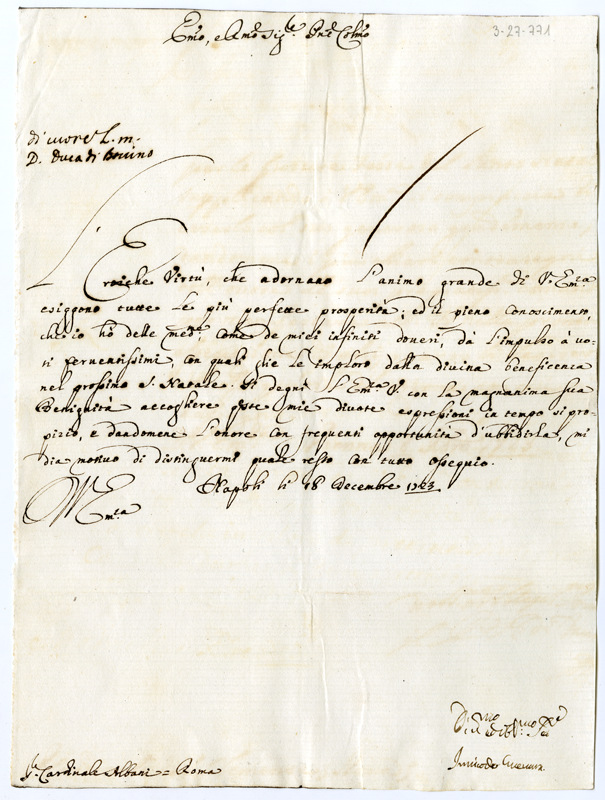 3-27-771
Em̃o, e Rmõ Sig.re Pñe Colmõ
di cuore L. m.
D. Duca di Bovino
L'Eroiche Virtù, che adornano l'animo grande di V. Em.za
esiggono tutte le più perfette prosperità; ed il pieno conoscimento,
che io hò delle med.e, come de miei infiniti doveri, dà l'impulso à vo-
ti ferventissimi, con quali che le imploro dalla divina beneficenza
nel prossimo S. Natale. Si degni l'Em.za V. con la magnanima sua
Benignità accogliere queste mie divote espressioni in tempo sì pro-
pizio, e dandomene l'onore con frequenti opportunità d'ubbidirla, mi
dia motivo di distinguermi quale resto con tutto ossequio.
Napoli li 18 Decembre 1723
V Em.za
S.r Cardinale Albani = Roma